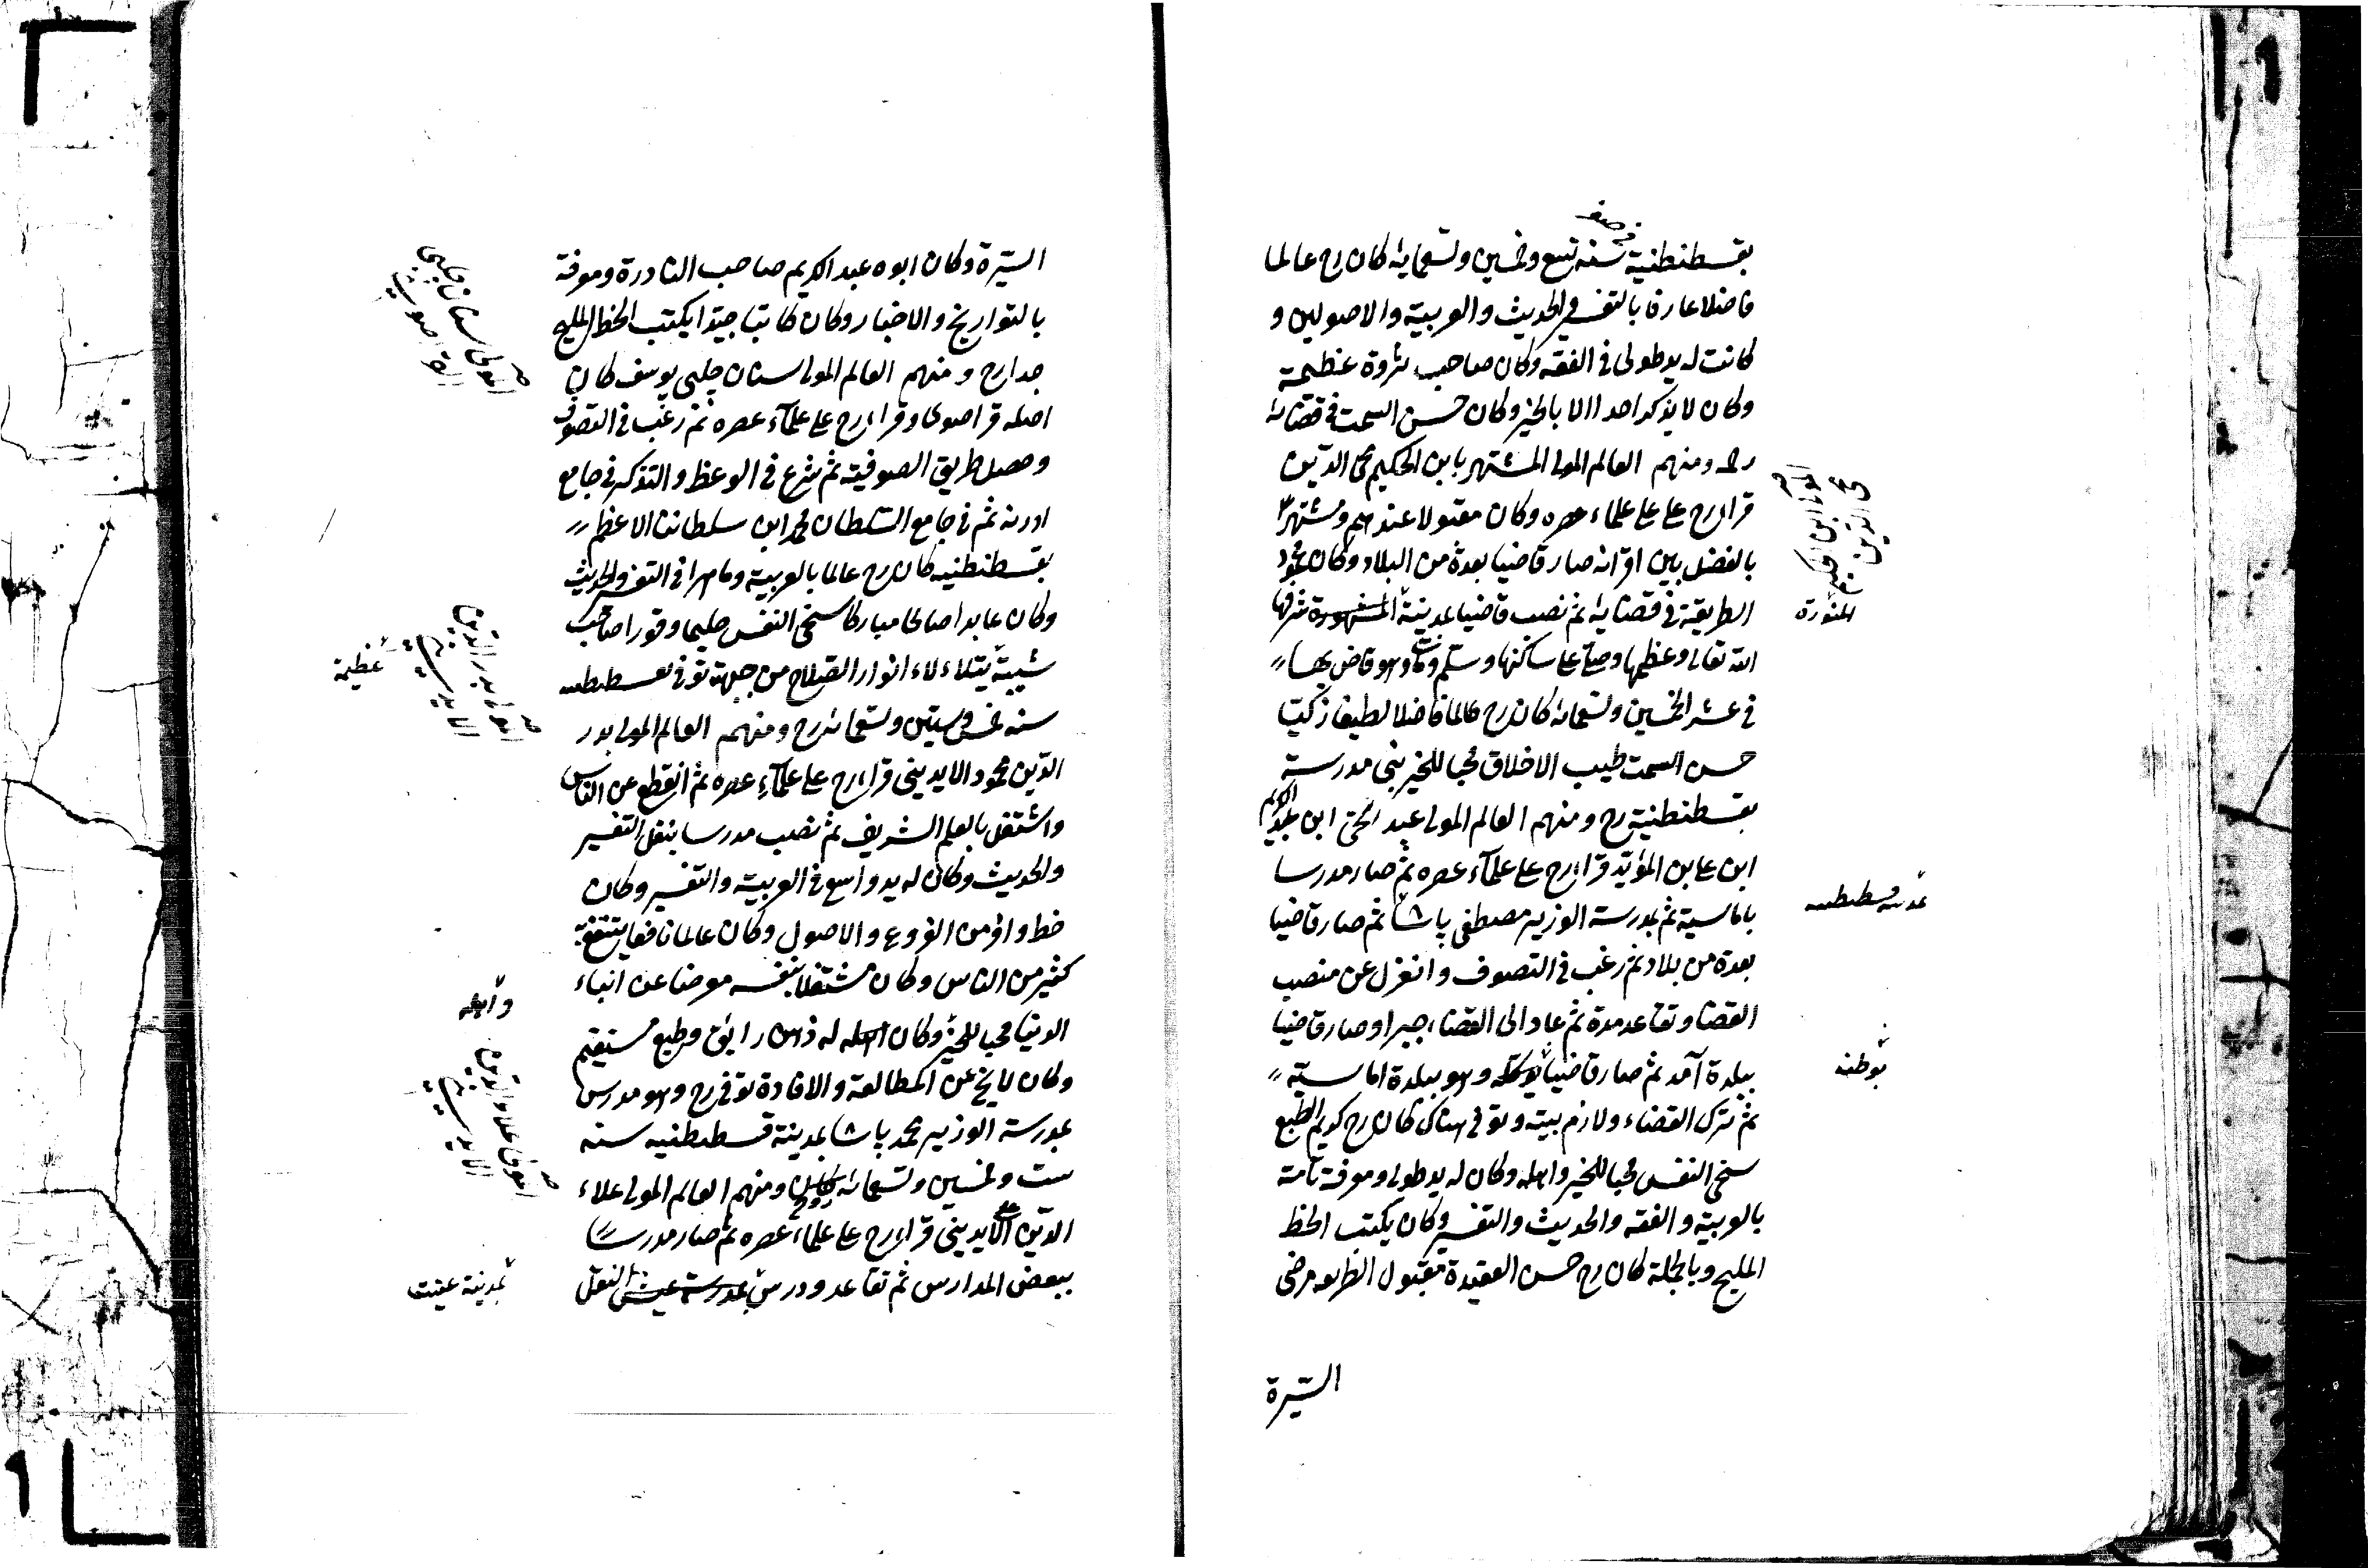 في صفر
بقسطنطنية سنة تسع وخمسين وتسعماية كان رح عالما
فاضلا عارفا بالتفسير والحديث والعربية والاصولين و
كانت له يد طولى فى الفقه وكان صاحب ثروة عظيمة
وكان لا يذكر احدا الا بالخير وكان حسن السمت فى قضائه
رحه ومنهم العالم المولى المشتهر بابن الحكيم محى الدين
قرا رح على علماء عصره وكان مقبولا عندهم ومشتهرا
بالفضل بين اقرانه صار قاضيا بعدة من البلاد وكان محمود
الطريقة فى قضايه ثم نصب قاضيا بمدينة المشهورة شرفها
الله تعالى وعظمها وصلى على ساكنها وسلم ومات وهو قاض بها
فى عشر الخمسين وتسعمائه كان رح عالما فاضلا لطيفا زكيا
حسن السمت طيب الاخلاق محبا للخير بنى مدرسة
بقسطنطنية رح ومنهم العالم المولى عبد الحى ابن عبد الكريم
ابن على بن المؤيد قرا رح على علمآء عصره ثم صار مدرسا
باماسية ثم بمدرسة الوزير مصطفى پاشا ثم صار قاضيا
بعدة من بلاد ثم رغب فى التصوف وانعزل عن منصب
القضا وتقاعد مدة ثم عاد الى القضاء جبرا وصار قاضيا
ببلدة آمد ثم صار قاضيا وهو ببلدة اماسية
ثم ترك القضاء ولازم بيته وتوفى هناك كان رح كريم الطبع
سخى النفس محبا للخير واهله وكان له يد طولى ومعرفة تامة
بالعربية والفقه والحديث والتفسير وكان يكتب الخط
المليح وبالجملة كان رح حسن العقيدة مقبول الطريقه مرضى
السيرة
المولى ابن الحكيم
محى الدين
المنورة
بمدينة قسطنطنية
بوطنه
السيرة وكان ابوه عبد الكريم صاحب النادرة ومعرفة
بالتواريخ والاخبار وكان كاتبا جيدا يكتب الخط المليح
جدا رح ومنهم العالم المولى سنان چلبى يوسف كان
اصله قراصوى وقرا رح على علمآء عصره ثم رغب فى التصوف
وحصل طريق الصوفية ثم شرع فى الوعظ والتذكير فى جامع
ادرنه ثم فى جامع السلطان محمد ابن سلطاننا الاعظم
بقسطنطنيه كان رح عالما بالعربية وماهرا فى التفسير والحديث
وكان عابدا صالحا مباركا سخى النفس حليما وقورا صاحب
شيبة يتلاءلاء انوار الصلاح من جبهته توفى بقسطنطنيه
سنه خمس وستين وتسعمائه رح ومنهم العالم المولى بدر
الدين محمود الايدينى قرا رح على علمآء عصره ثم انقطع عن الناس
واشتغل بالعلم الشريف ثم نصب مدرسا بنقل التفسير
والحديث وكان له يد واسع فى العربية والتفسير وكان
حظ وافر من الفروع والاصول وكان عالما نافعا ينتفع به
كثير من الناس وكان مشتغلا بنفسه معرضا عن ابناء
الدنيا محبا للخير وكان اهله له ذهن رايق وطبع مستقيم
وكان لا يخ عن المطالعة والافادة توفى رح وهو مدرس
بمدرسة الوزير محمد پاشا بمدينة قسطنطنيه سنه
ست وخمسين وتسعمائه ومنهم العالم المولى علاء
الدين الايدينى قرا رح على علماء عصره ثم صار مدرسا
ببعض المدارس ثم تقاعد ودرس بمدرسة النقل
المولى سنان چلبى
القراصوى
عظيمة
المولى بدر الدين
الايدينى
واهله
المولى علاء الدين
الايدينى
بمدينة